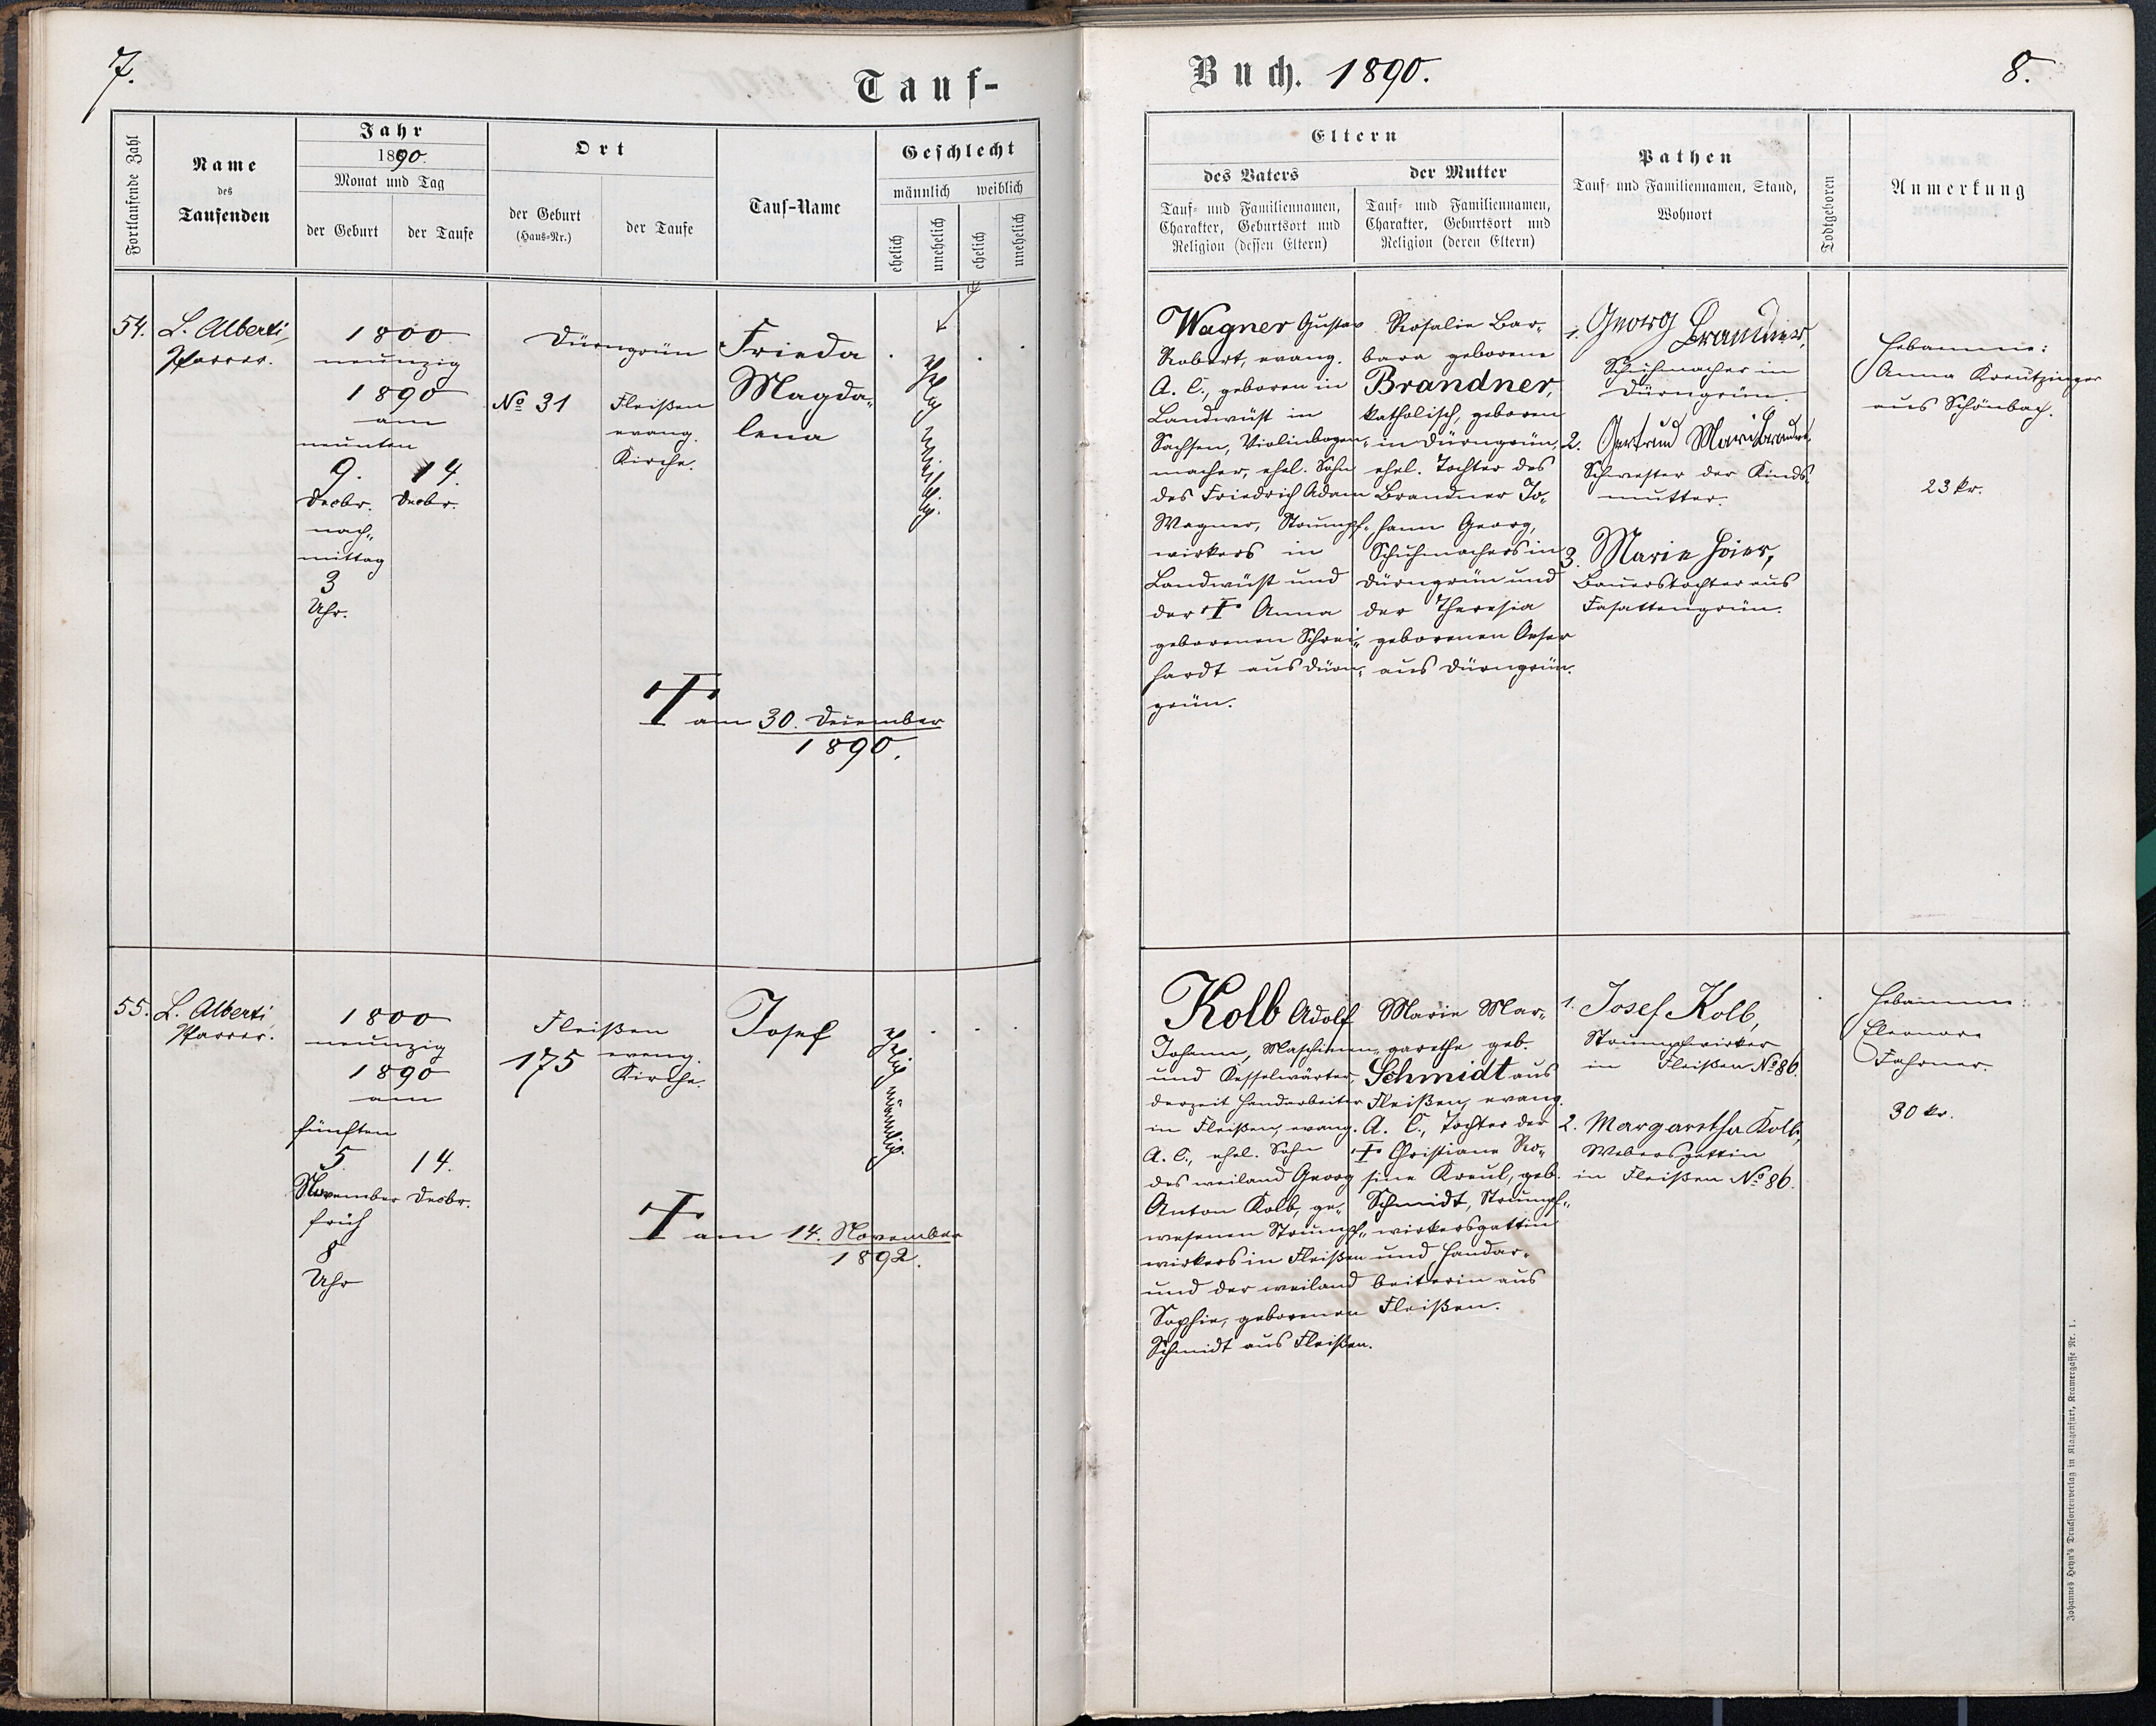 7.
Tauf-
Fortlaufende Zahl
Name
des
Taufenden
Jahr
1890.
Monat und Tag
der Geburt
der Taufe
Ort
der Geburt
(Haus-Nr.)
der Taufe
Tauf-Name
Geschlecht
männlich
weiblich
ehelich
unehelich
ehelich
unehelich
54.
L. Alberti,
Pfarrer.
1800
neunzig
1890
am
neunten
9.
Decbr.
nach„
mittag
3
Uhr.
14.
Decbr.
Dürngrün
No 31
Fleißen
evang.
Kirche.
Frieda
Magda„
lena
ehelich
weiblich.
† am 30. Dezember
1890.
55.
L. Alberti,
Pfarrer.
1800
neunzig
1890
am
fünften
5.
November
früh
8
Uhr
14.
Decbr.
Fleißen
175
evang.
Kirche.
Josef
ehelich männlich.
† am 14. November
1892.
Buch. 1890.
8.
Eltern
des Vaters
Tauf- und Familiennamen,
Charakter, Geburtsort und
Religion (dessen Eltern)
der Mutter
Tauf- und Familiennamen,
Charakter, Geburtsort und
Religion (deren Eltern)
Pathen
Tauf- und Familiennamen, Stand,
Wohnort
Todtgeboren
Anmerkung
Wagner Gustav
Robert, evang.
A. C., geboren in
Landwüst in
Sachsen, Violinbogen-
macher, ehel. Sohn
des Friedrich Adam
Wagner, Strumpf-
wirkers in
Landwüst und
der † Anna
geborenen Schrei„
hardt aus Dürn„
grün.
Rosalie Bar-
bara geborene
Brandner,
katholisch, geboren
in Dürngrün,
ehel. Tochter des
Brandner Jo„
hann Georg,
Schuhmachers in
Dürngrün und
der Theresia
geborenen
aus Dürngrün.
1. Georg Brandner,
Schuhmacher in
Dürngrün.
2. Gertrud Marie Brandn.
Schwester der Kinds„
mutter.
3. Marie Hoier,
Bauerstochter aus
Fasattengrün.
Hebamme:
Anna Kreutzinger
aus Schönbach.
23 kr.
Kolb Adolf
Johann, Maschinen„
und Kesselwärter,
derzeit Handarbeiter
in Fleißen, evang.
A. C., ehel. Sohn
des weiland Georg
Anton Kolb, ge„
wesenen Strumpf„
wirkers in Fleißen
und der weiland
Sophie, geborenen
Schmidt aus Fleißen.
Marie Mar-
garethe geb.
Schmidt aus
Fleißen, evang.
A. C., Tochter der
† Christiane Ro„
sine Kreul, geb.
Schmidt, Strumpf„
wirkersgattin
und Handar-
beiterin aus
Fleißen.
1. Josef Kolb,
Strumpfwirker
in Fleißen No 86.
2. Margaretha Kolb,
Webersgattin
in Fleißen No 86.
Hebamme:
Eleonore
Fahrner.
30 kr.
Johannes Heyn's Drucksortenverlag in Klagenfurt, Kramergasse Nr. 1.